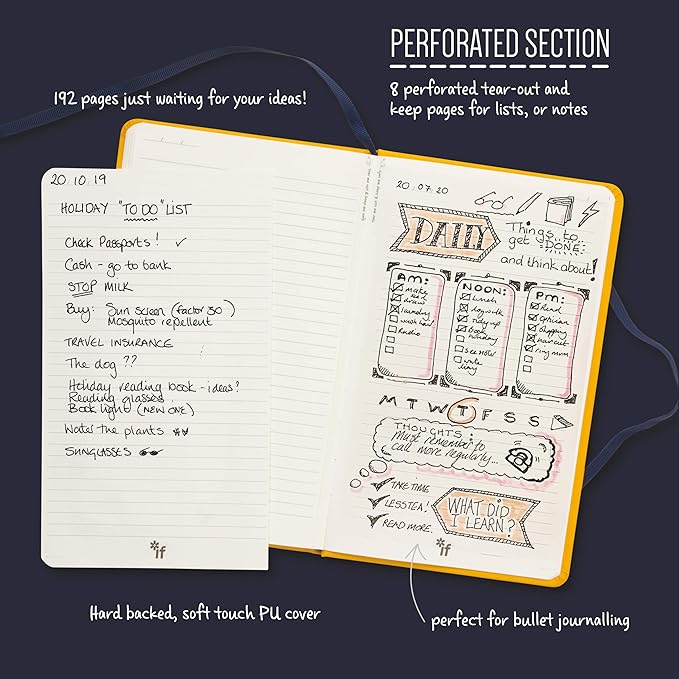 PERFORATED SECTION
8 perforated tear-out and
keep pages for lists, or notes
192 pages just waiting for your ideas!
20.10.19
HOLIDAY "TO DO" LIST
Check Passports! ✓
Cash - go to bank
STOP MILK
Buy: Sun screen (factor 30)
Mosquito repellent
TRAVEL INSURANCE
The dog ??
Holiday reading book - ideas?
Reading glasses.
Book light (NEW ONE)
Water the plants
SUNGLASSES
if
20.07.20
DAILY
Things to
get DONE
and think about!
AM:
make bed
draw
laundry
wash hair
Radio
NOON:
lunch
dog walk
tidy up
book holiday
see note
write
PM:
Read
optician
shopping
hair cut
ring mum
M T W T F S S
6
THOUGHTS:
Must remember to
call more regularly...
TAKE TIME
LESS TEA!
READ MORE.
WHAT DID
I LEARN?
if
Hard backed, soft touch PU cover
perfect for bullet journalling